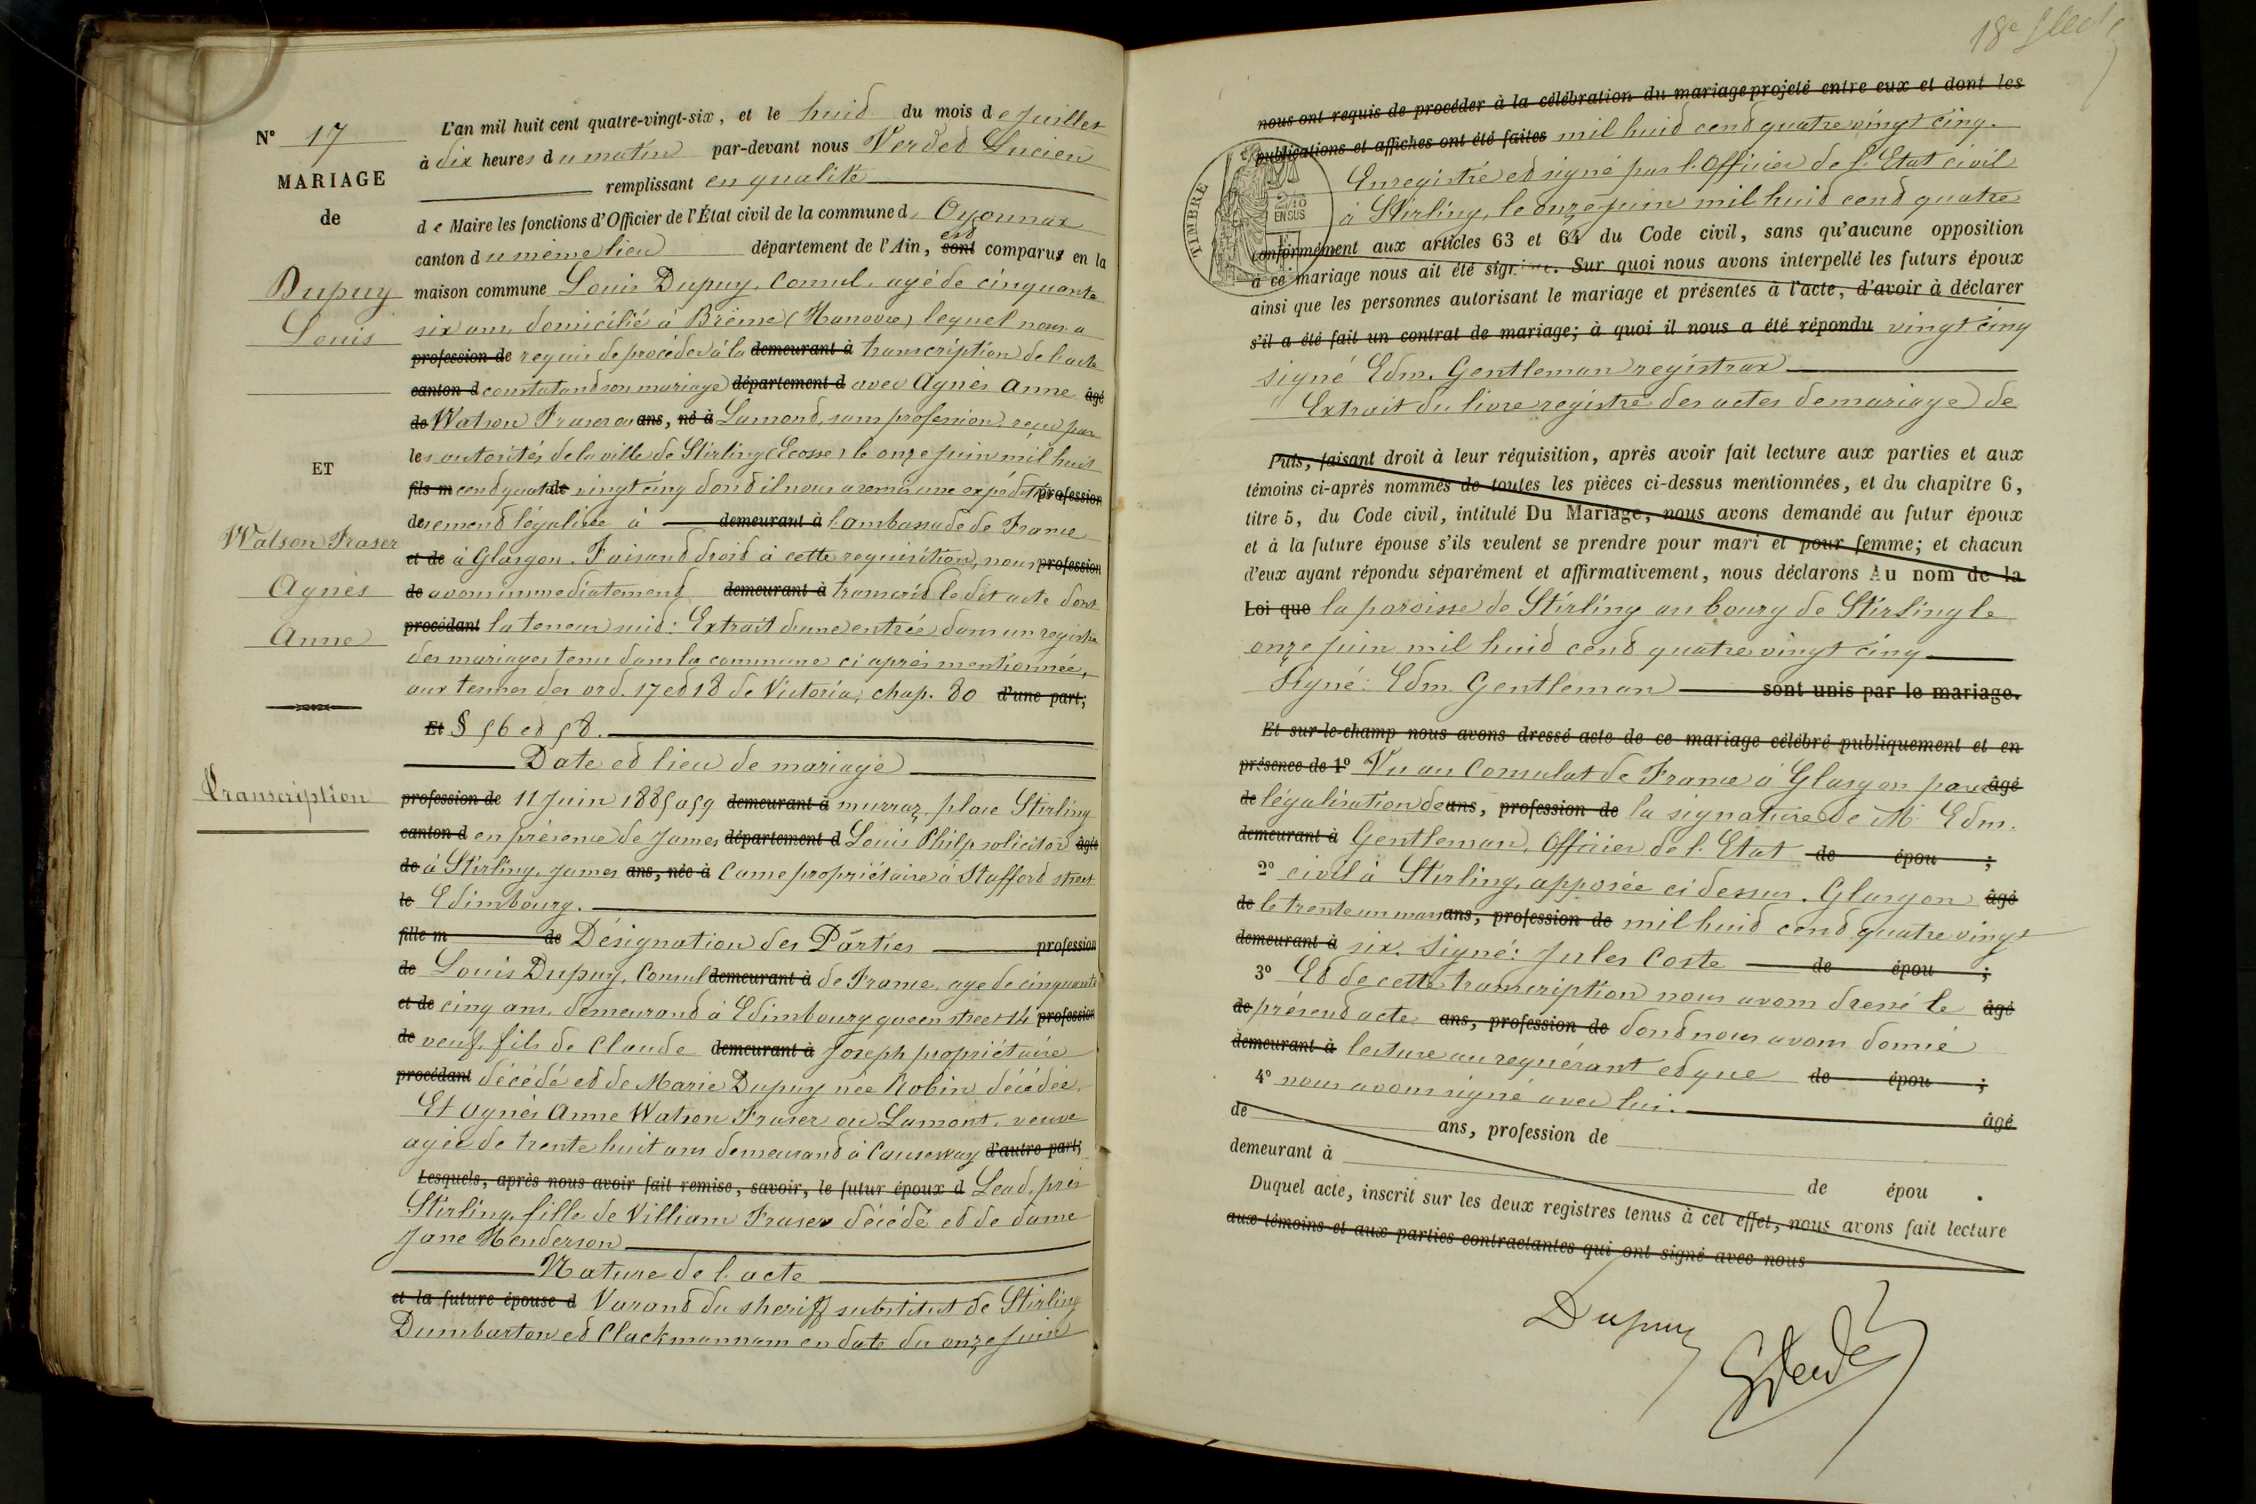 N° 17
MARIAGE
de
Dupuy
Louis
ET
Watson Fraser
Agnès
Anne
Transcription
L'an mil huit cent quatre-vingt-six, et le huit du mois de Juillet
à dix heures du matin par-devant nous Verdet Lucien
remplissant en qualité
de Maire les fonctions d'Officier de l'État civil de la commune d' Oyonnax
canton du même lieu département de l'Ain, est sont comparus en la
maison commune Louis Dupuy, Consul, agé de cinquante
six ans, domicilié à Brême (Hanovre) lequel nous a
profession de requis de procéder à la demeurant à transcription de l'acte
canton d constatant son mariage département d avec Agnès Anne âgé
de Watson Fraser ou ans, né à Lamond, sans profession, reçu par
les autorités de la ville de Stirling (Ecosse) le onze juin mil huit
fils m cent quatre de vingt cinq dont il nous a remis une expédition profession
de dement légalisée à demeurant à l'ambassade de France
et de à Glasgow. Faisant droit à cette requisition, nous profession
de avons immediatement demeurant à transcrit le dit acte dont
procédant la teneur suit: Extrait d'une entrée dans un registre
des mariages tenu dans la commune ci après mentionnée,
aux termes des ord. 17 et 18 de Victoria, chap. 80 d'une part;
Et § 56 et 58.
Date et lieu de mariage
profession de 11 Juin 1885 a 59 demeurant à murray place Stirling
canton d en présence de James département d Louis Philp solicitor âgée
de à Stirling, James ans, née à Came propriétaire à Stafford street
le Edimbourg.
fille m de Désignation des Parties profession
de Louis Dupuy, Consul demeurant à de France, age de cinquante
et de cinq ans, demeurant à Edimbourg queen street 14 profession
de veuf, fils de Claude demeurant à Joseph propriétaire
procédant décédé et de Marie Dupuy née Robin décédée.
Et Agnès Anne Watson Fraser ou Lamont, veuve
agée de trente huit ans demeurant à Causeway d'autre part;
Lesquels, après nous avoir fait remise, savoir, le futur époux d Lead, près
Stirling, fille de Villiam Fraser décédé et de dame
Jane Henderson
Nature de l'acte
et la future épouse d Varand du sheriff substitut de Stirling
Dumbarton et Clackmannam en date du onze Juin
18e
nous ont requis de procéder à la célébration du mariage projeté entre eux et dont les
publications et affiches ont été faites mil huit cent quatre vingt cinq.
Enregistré et signé par l'Officier de l'Etat civil
à Stirling, le onze juin mil huit cent quatre
TIMBRE
EN SUS
conformément aux articles 63 et 64 du Code civil, sans qu'aucune opposition
à ce mariage nous ait été signifiée. Sur quoi nous avons interpellé les futurs époux
ainsi que les personnes autorisant le mariage et présentes à l'acte, d'avoir à déclarer
s'il a été fait un contrat de mariage; à quoi il nous a été répondu vingt cinq
signé Edm. Gentleman registrar
Extrait du livre registre des actes de mariage de
Puis, faisant droit à leur réquisition, après avoir fait lecture aux parties et aux
témoins ci-après nommés de toutes les pièces ci-dessus mentionnées, et du chapitre 6,
titre 5, du Code civil, intitulé Du Mariage, nous avons demandé au futur époux
et à la future épouse s'ils veulent se prendre pour mari et pour femme; et chacun
d'eux ayant répondu séparément et affirmativement, nous déclarons Au nom de la
Loi que la paroisse de Stirling au bourg de Stirling le
onze juin mil huit cent quatre vingt cinq
Signé: Edm. Gentleman sont unis par le mariage.
Et sur-le-champ nous avons dressé acte de ce mariage célébré publiquement et en
présence de 1° Vu au Consulat de France à Glasgow pour âgé
de légalisation de ans, profession de la signature de Mr Edm.
demeurant à Gentleman, Officier de l'Etat de épou ;
2° civil à Stirling, apposée ci dessus. Glasgow âgé
de le trente un mars ans, profession de mil huit cent quatre vingt
demeurant à six. Signé: Jules Coste de épou ;
3° Et de cette transcription nous avons dressé le âgé
de présent acte ans, profession de dont nous avons donné
demeurant à lecture au requérant et que de épou ;
4° nous avons signé avec lui. âgé
de ans, profession de
demeurant à de épou .
Duquel acte, inscrit sur les deux registres tenus à cet effet, nous avons fait lecture
aux témoins et aux parties contractantes qui ont signé avec nous
Dupuy